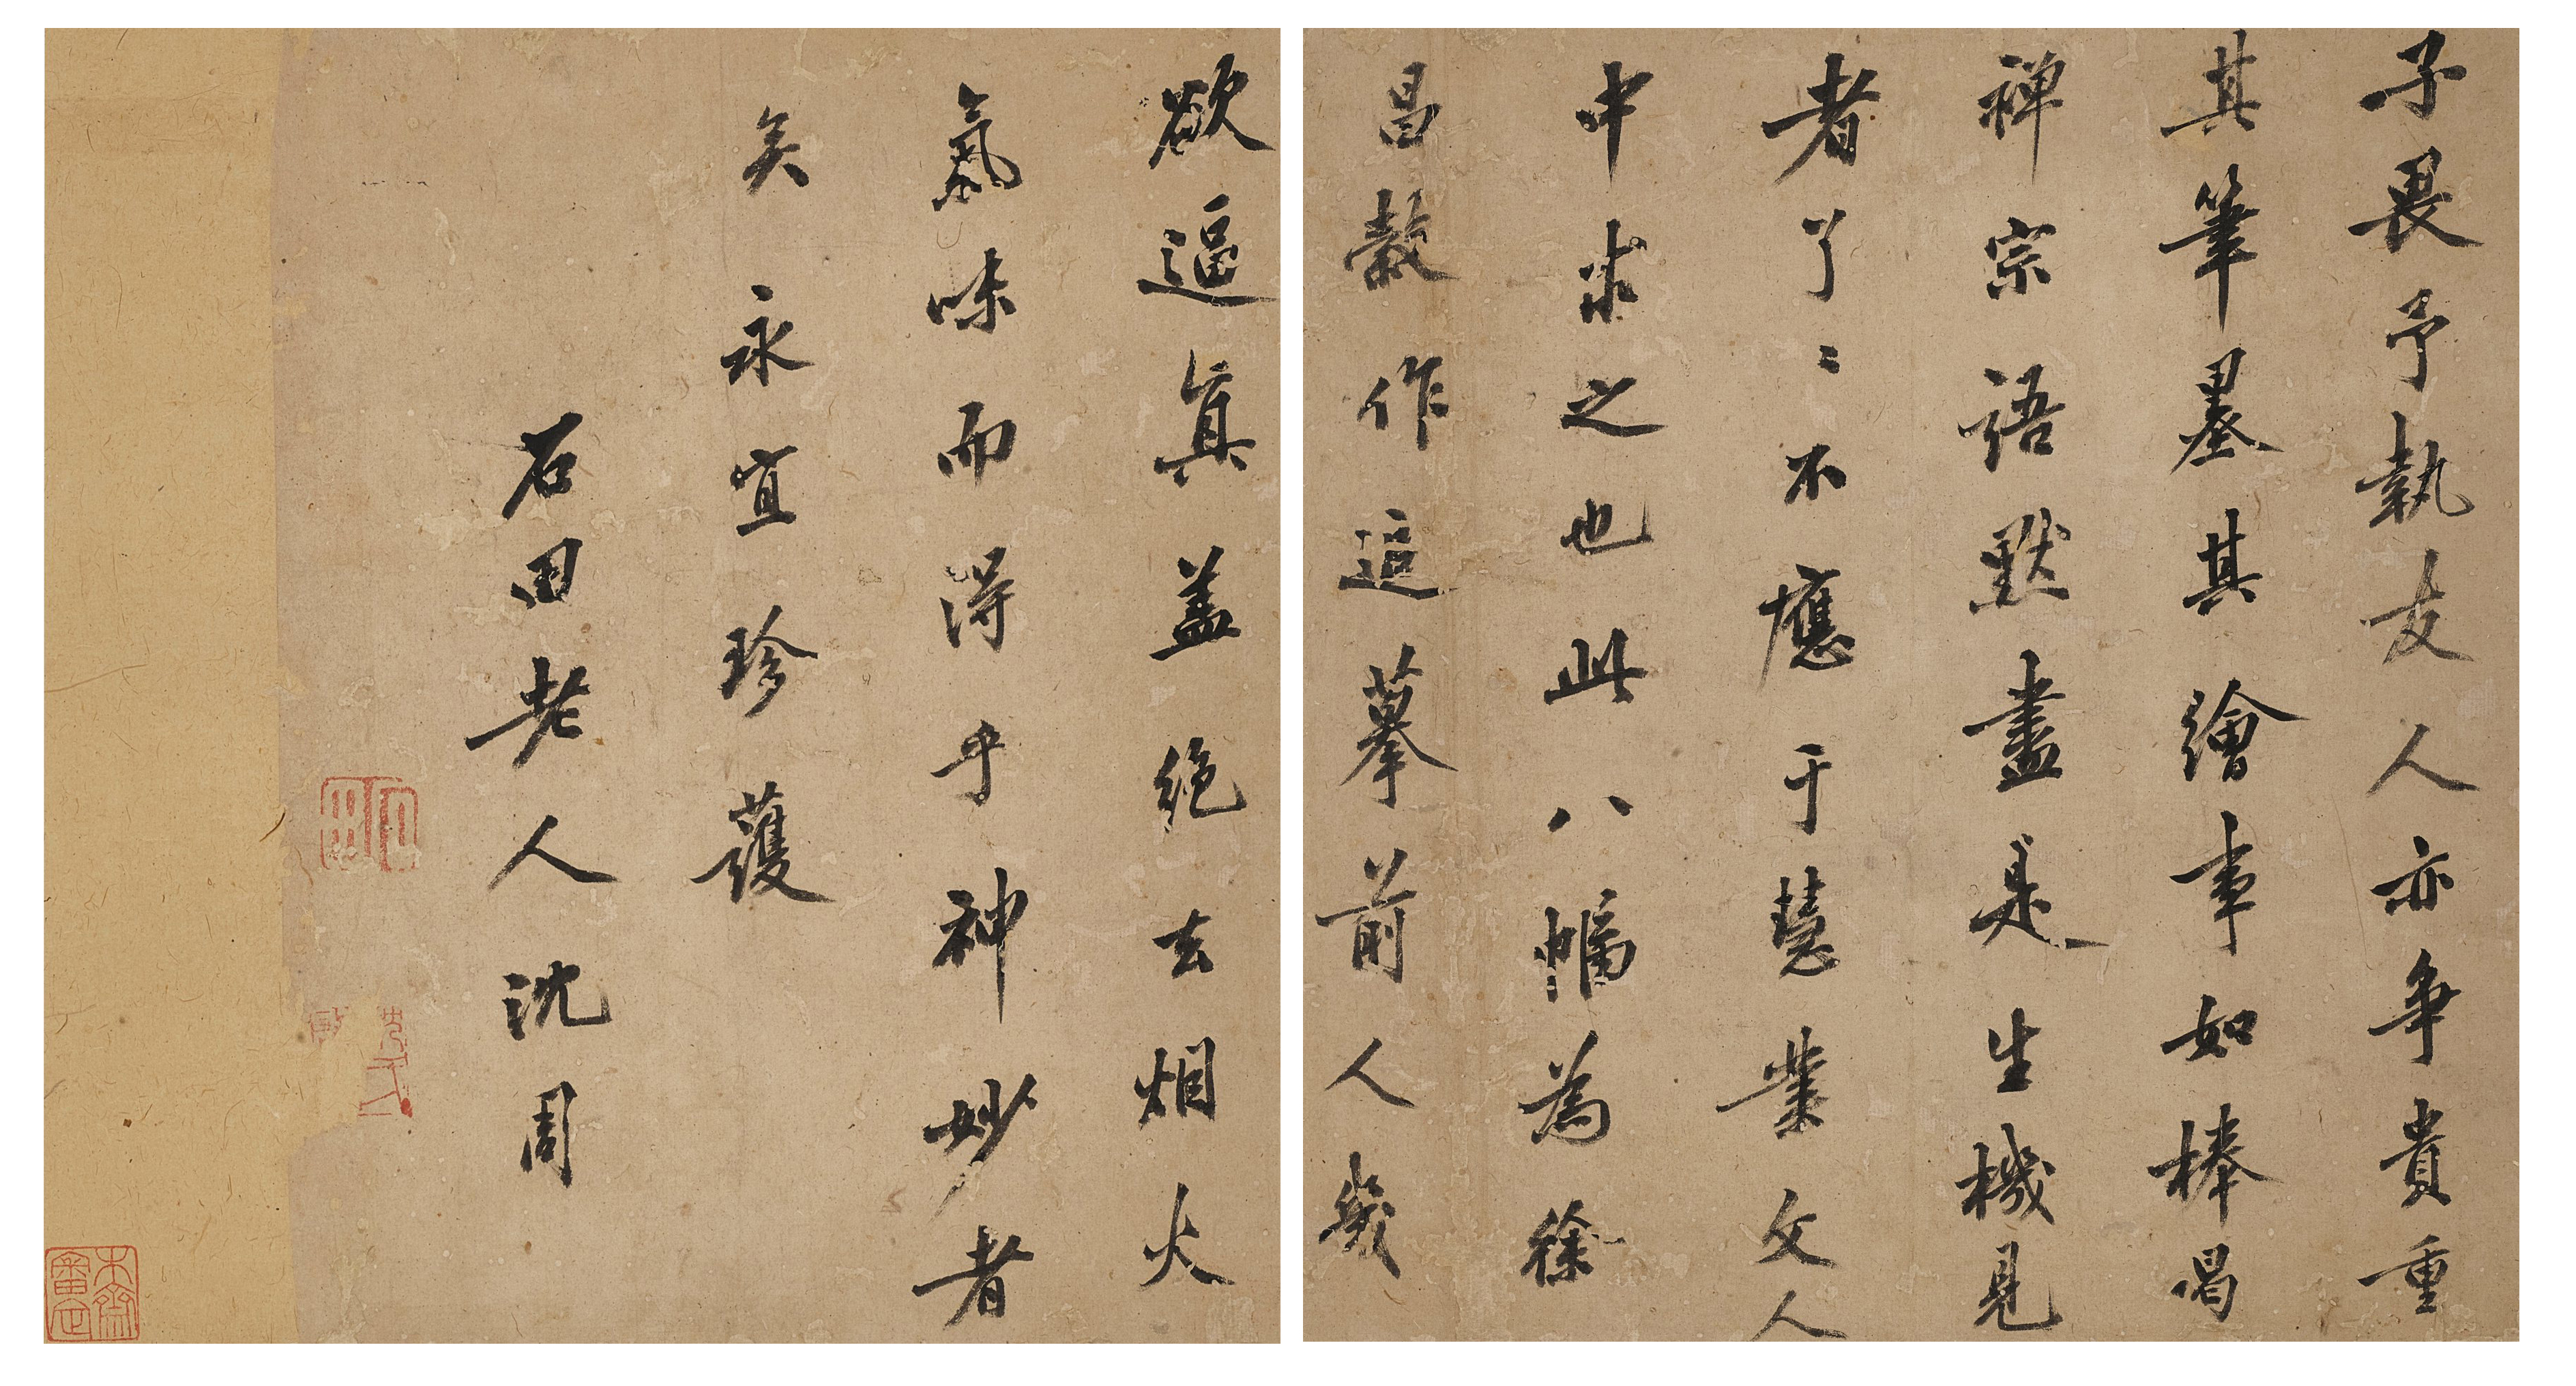 子畏予執友人亦争貴重
其筆墨其繪事如棒喝
禅宗語默盡是生機見
者了〻不應于慧業文人
中求之也此八幅為徐
昌穀作追摹前人幾
欲逼真盖絶去烟火
氣味而得乎神妙者
矣永宜珍護
石田老人沈周